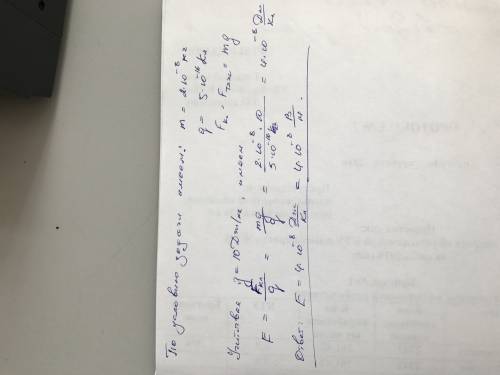 По условию задачи имеем: m = 2·10⁻⁸ кг
q = 5·10⁻¹⁶ Кл
Fкл = Fтяж = mg
Учитывая g = 10 Дж/кг, имеем
F = Fкл/q = mg/q = 2·10⁻⁸·10/5·10⁻¹⁶ = 4·10⁻⁸ Дж/Кл
Ответ: E = 4·10⁻⁸ Дж/Кл = 4·10⁻⁸ В/м.